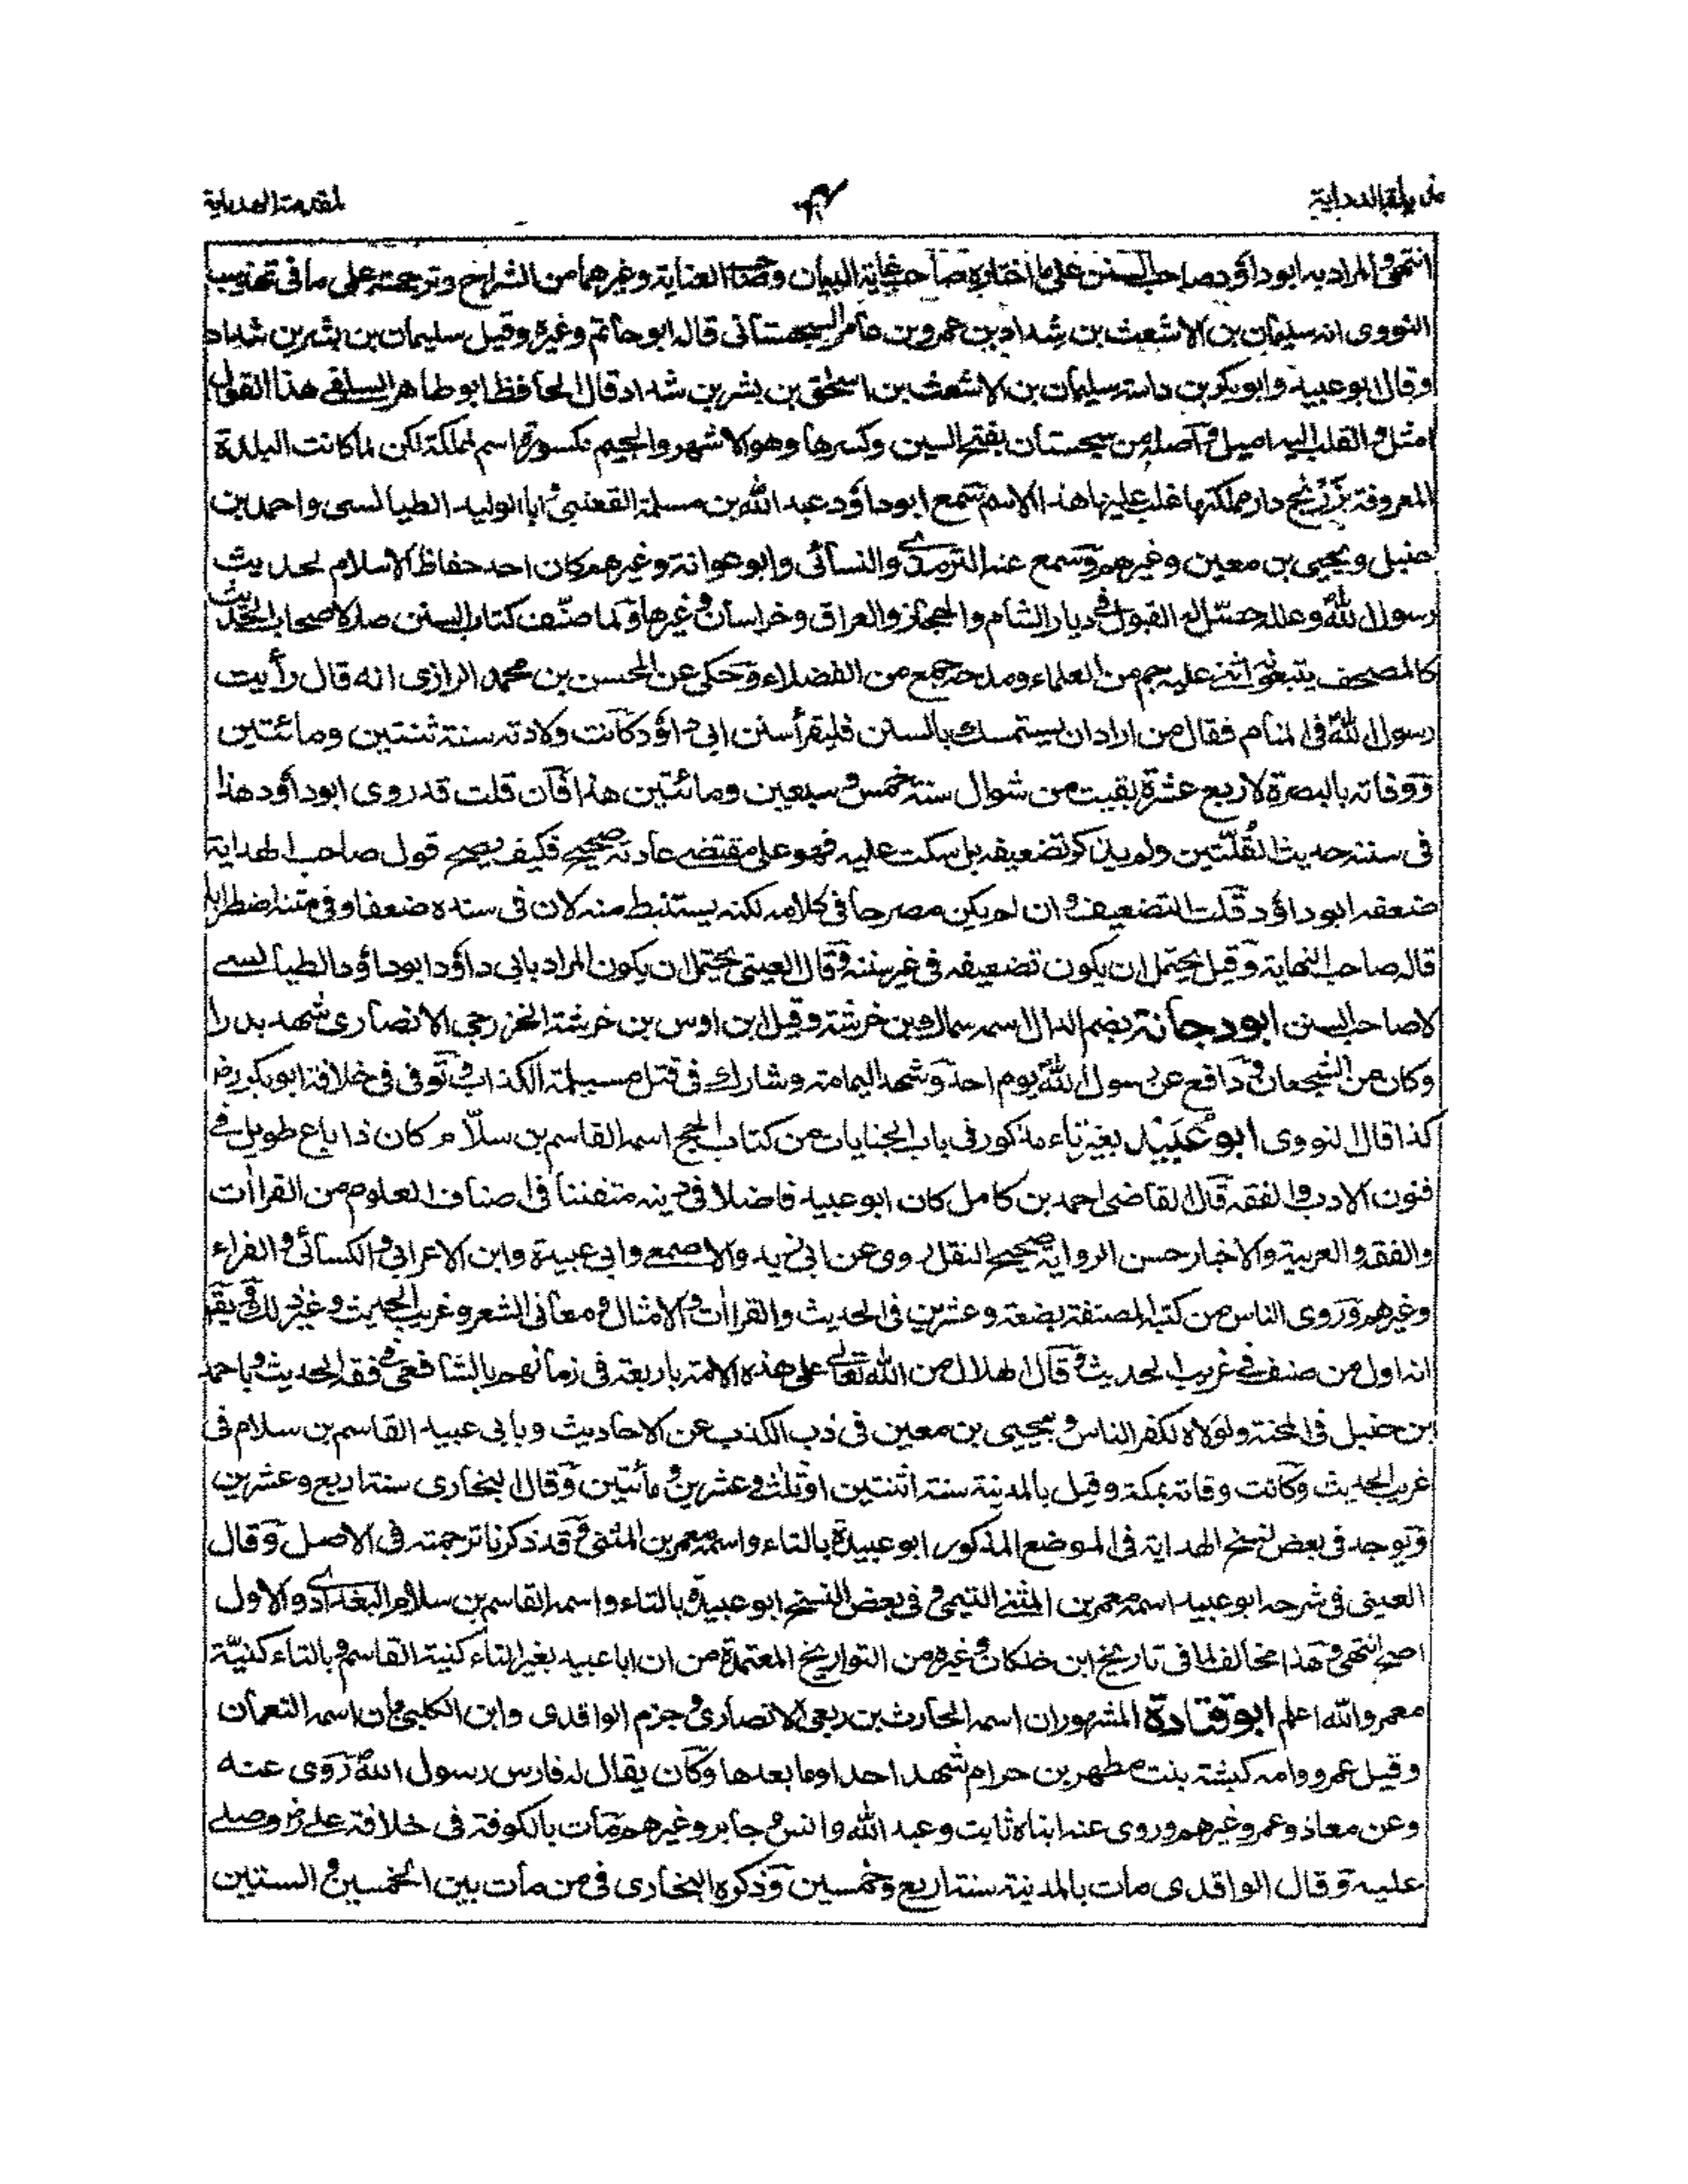 مذيلة الدراية لمقدمة الهداية
انتهى والمراد به ابو داؤد صاحب السنن على ما اختاره صاحب غاية البيان وصاحب العناية وغيرهما من الشراح وترجمته على ما فى تهذيب
النووى انه سليمان بن الاشعث بن شداد بن عمرو بن عامر السجستانى قاله ابو حاتم وغيره وقيل سليمان بن بشر بن شداد
وقال ابو عبيد وابو بكر بن داسة سليمان بن الاشعث بن اسحٰق بن بشر بن شداد قال الحافظ ابو طاهر السلفى هذا القول
امثل والقلب اليه اميل واصله من سجستان بفتح السين وكسرها وهو الاشهر والجيم مكسورة اسم لمملكة لكن لما كانت البلدة
المعروفة بزرنج دار مملكتها غلب عليها هذا الاسم سمع ابو داؤد عبد الله بن مسلمة القعنبى وابا الوليد الطيالسى واحمد بن
حنبل ويحيى بن معين وغيرهم وسمع عنه الترمذى والنسائى وابو عوانة وغيرهم كان احد حفاظ الاسلام لحديث
رسول الله وعلله حصل له القبول فى ديار الشام والحجاز والعراق وخراسان وغيرها ولما صنّف كتاب السنن صار لاصحاب الحديث
كالمصحف يتبعونه اثنى عليه جم من العلماء ومدحه جمع من الفضلاء وحكى عن الحسن بن محمد الرازى انه قال رأيت
رسول الله فى المنام فقال من اراد ان يستمسك بالسنن فليقرأ سنن ابى داؤد كانت ولادته سنة ثنتين ومائتين
ووفاته بالبصرة لاربع عشرة بقيت من شوال سنة خمس وسبعين ومائتين هذا فان قلت قد روى ابو داؤد هذا
فى سننه حديث القلّتين ولم يذكر تضعيفه بل سكت عليه فهو على مقتضى عادته صحيح فكيف يصح قول صاحب الهداية
ضعفه ابو داؤد قلت التضعيف وان لم يكن مصرحا فى كلامه لكنه يستنبط منه لان فى سنده ضعفا وفى متنه اضطرابا
قاله صاحب النهاية وقيل يحتمل ان يكون تضعيفه فى غير سننه وقال العينى يحتمل ان يكون المراد بابى داؤد ابو داؤد الطيالسى
لا صاحب السنن ابو دجانة بضم الدال اسمه سماك بن خرشة وقيل ابن اوس بن خرشة الخزرجى الانصارى شهد بدرا
وكان من الشجعان دافع عن رسول الله يوم احد وشهد اليمامة وشارك فى قتل مسيلمة الكذاب وتوفى فى خلافة ابو بكر رض
كذا قال النووى ابو عبيد بغير تاء مذكور فى باب الجنايات من كتاب الحج اسمه القاسم بن سلّام كان ذا باع طويل فى
فنون الادب والفقه قال القاضى احمد بن كامل كان ابو عبيد فاضلا فى دينه متفننا فى اصناف العلوم من القراأت
والفقه والعربية والاخبار حسن الرواية صحيح النقل روى عن ابى زيد والاصمعى وابى عبيدة وابن الاعرابى والكسائى والفراء
وغيرهم وروى الناس من كتبه المصنفة بضعة وعشرين فى الحديث والقراأت والامثال ومعانى الشعر وغريب الحديث وغير ذلك ويقال
انه اول من صنف فى غريب الحديث وقال الهلال من الله تعالى على هذه الامة باربعة فى زمانهم بالشافعى فى فقه الحديث وباحمد
بن حنبل فى المحنة ولولاه لكفر الناس وبيحيى بن معين فى ذب الكذب عن الاحاديث وبابى عبيد القاسم بن سلام فى
غريب الحديث وكانت وفاته بمكة وقيل بالمدينة سنة اثنتين او ثلث وعشرين ومأتين وقال البخارى سنة اربع وعشرين
ويوجد فى بعض نسخ الهداية فى الموضع المذكور ابو عبيدة بالتاء واسمه معمر بن المثنى وقد ذكرنا ترجمته فى الاصل وقال
العينى فى شرحه ابو عبيد اسمه معمر بن المثنى التيمى وفى بعض النسخ ابو عبيدة بالتاء واسمه القاسم بن سلام البغدادى والاول
اصح انتهى وهذا مخالف لما فى تاريخ ابن خلكان وغيره من التواريخ المعتمدة من ان ابا عبيد بغير التاء كنية القاسم وبالتاء كنيّة
معمر والله اعلم ابو قتادة المشهور ان اسمه الحارث بن ربعى الانصارى وجزم الواقدى وابن الكلبى بان اسمه النعمان
وقيل عمرو وامه كبشة بنت مطهر بن حرام شهد احدا وما بعدها وكان يقال له فارس رسول الله روى عنه
وعن معاذ وعمر وغيرهم وروى عنه ابناه ثابت وعبد الله وانس وجابر وغيرهم مات بالكوفة فى خلافة على رض وصلى
عليه وقال الواقدى مات بالمدينة سنة اربع وخمسين وذكره البخارى فى من مات بين الخمسين والستين